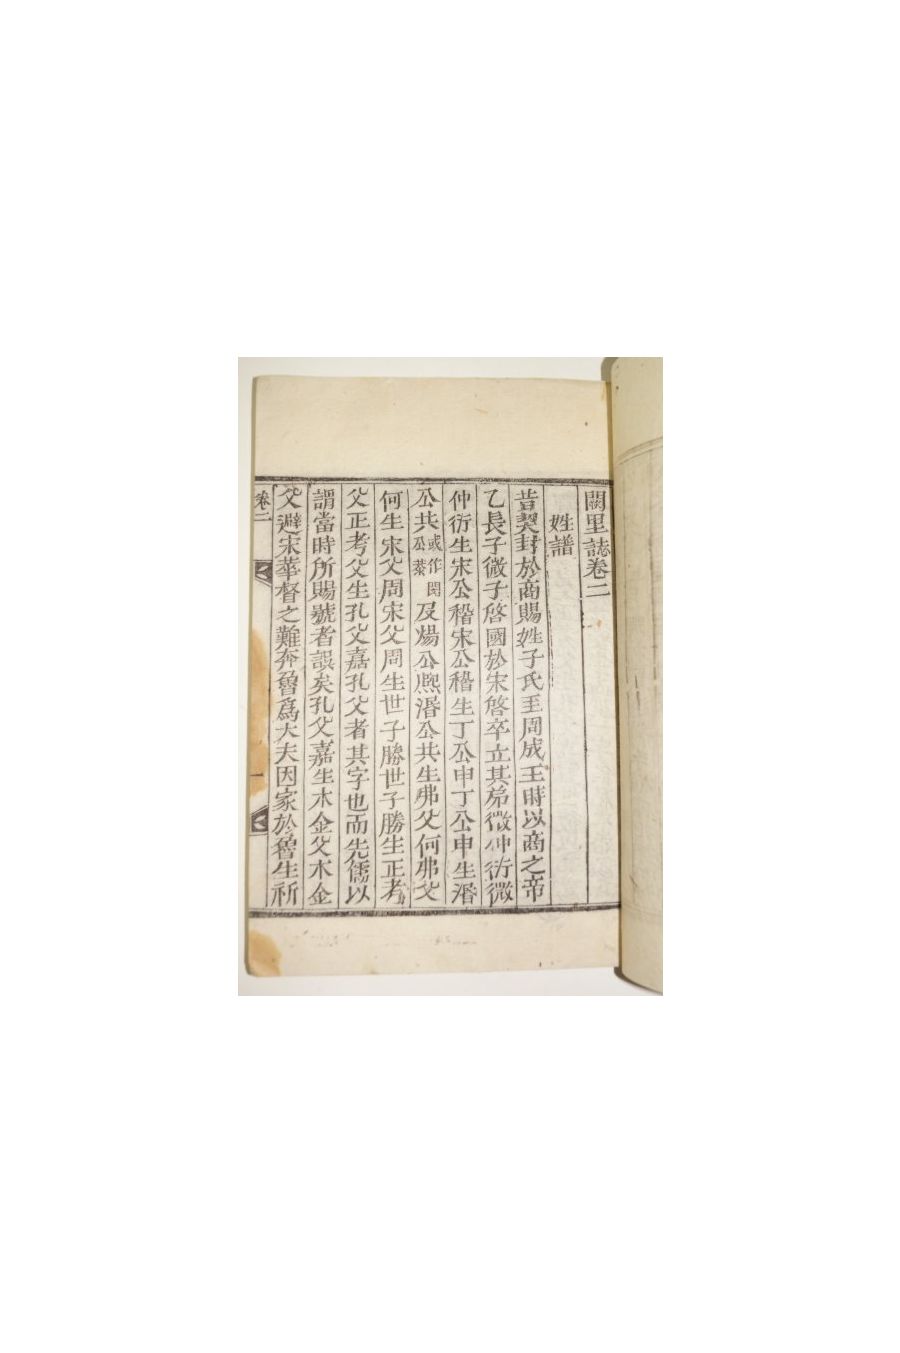 闕里誌卷二
姓譜
昔契封於商賜姓子氏至周成王時以商之帝
乙長子微子啓國於宋啓卒立其弟微仲衍微
仲衍生宋公稽宋公稽生丁公申丁公申生湣
公共或作閔公蔡及煬公熙湣公共生弗父何弗父
何生宋父周宋父周生世子勝世子勝生正考
父正考父生孔父嘉孔父者其字也而先儒以
謂當時所賜號者誤矣孔父嘉生木金父木金
父避宋華督之難奔魯爲大夫因家於魯生祈
卷二
一